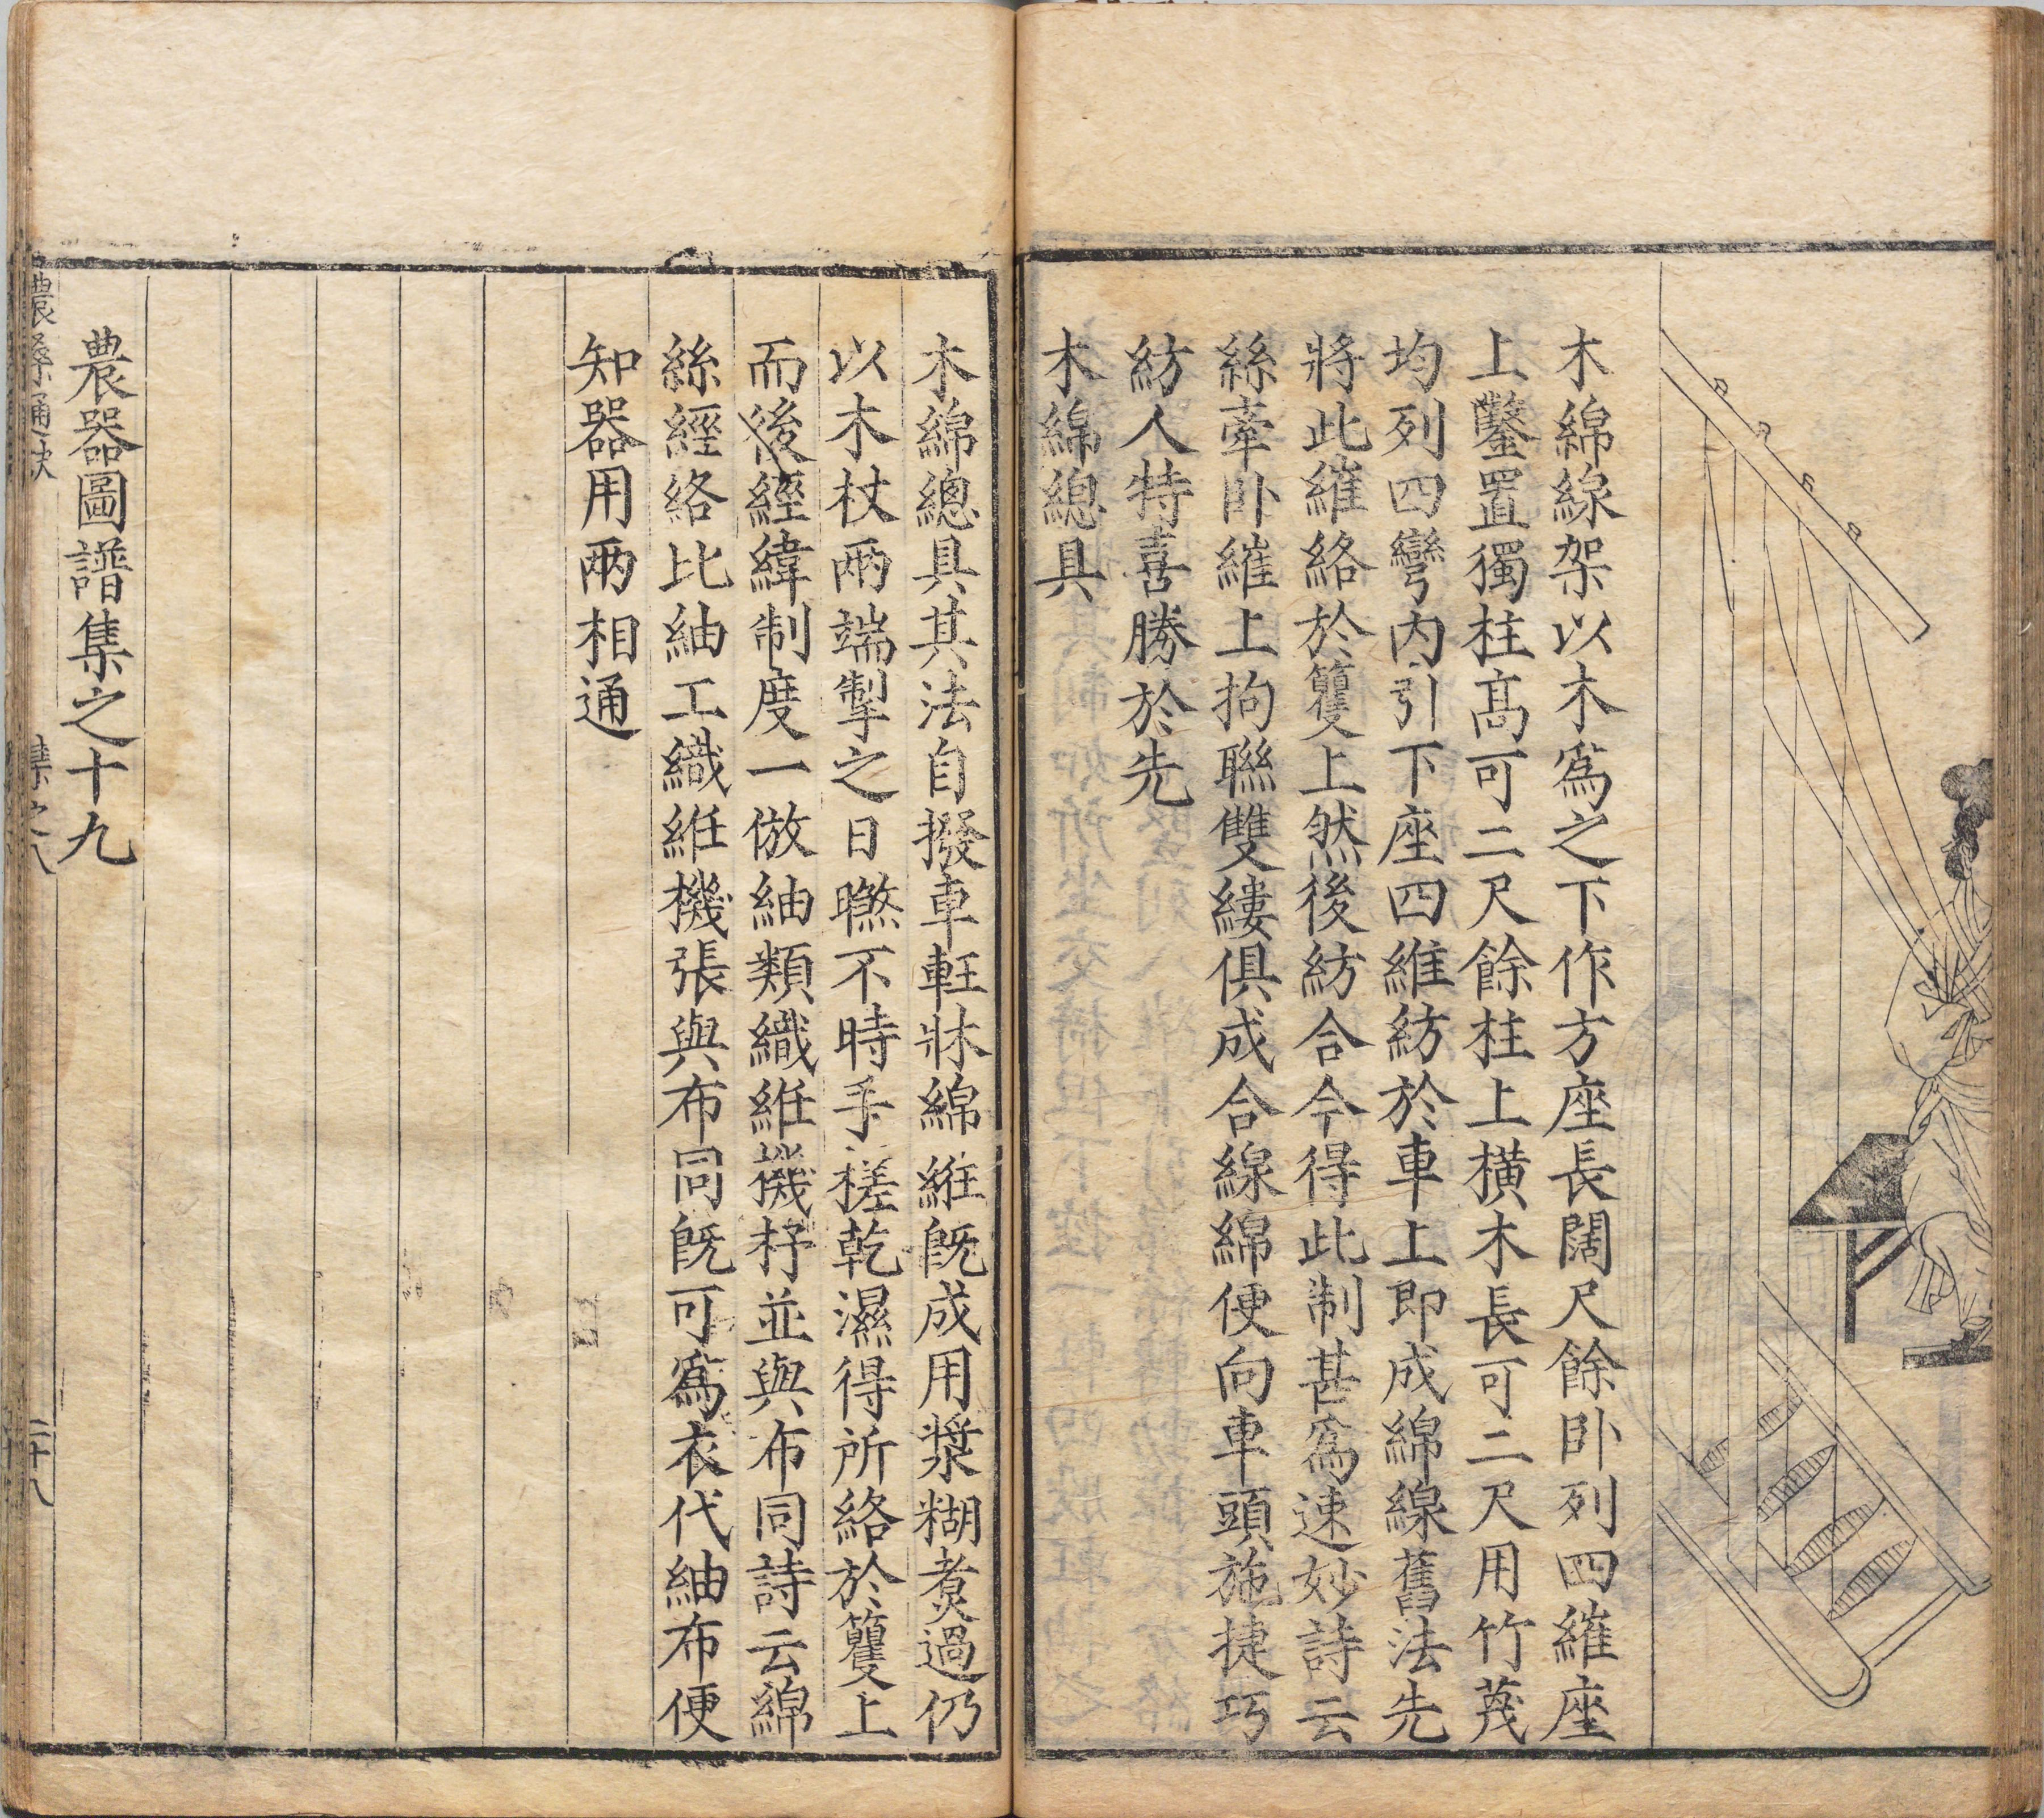 木綿線架以木爲之下作方座長闊尺餘卧列四維座
上鑿置獨柱髙可二尺餘柱上横木長可二尺用竹篾
均列四彎内引下座四維紡於車上即成綿線舊法先
將此維絡於籰上然後紡合今得此制甚爲速妙詩云
絲牽卧維上拘聯雙縷俱成合線綿便向車頭施捷巧
紡人特喜勝於先
木綿總具
木綿總具其法自撥車軠牀綿維既成用漿糊煑過仍
以木杖兩端掣之日㬠不時手搓乾濕得所絡於籰上
而後經緯制度一倣紬類織紝機杼並與布同詩云綿
絲經絡比紬工織紝機張與布同既可爲衣代紬布便
知器用兩相通
農器圖譜集之十九
農桑通訣
集之八
二十八